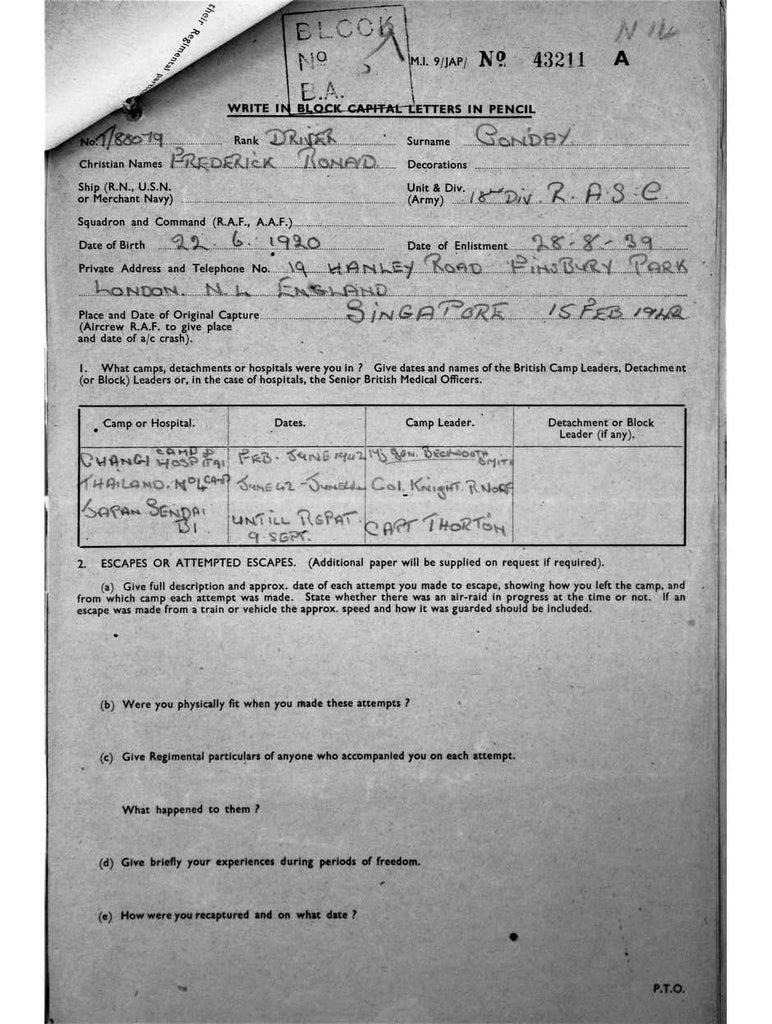 their Regimental parti
BLOCK
Nº
B.A.
M.I. 9/JAP/ Nº 43211 A
WRITE IN BLOCK CAPITAL LETTERS IN PENCIL
No. T/88079 Rank DRIVER Surname CONDAY
Christian Names FREDERICK RONALD Decorations
Ship (R.N., U.S.N. or Merchant Navy) Unit & Div. (Army) 18th DIV. R.A.S.C.
Squadron and Command (R.A.F., A.A.F.)
Date of Birth 22. 6. 1920 Date of Enlistment 28-8-39
Private Address and Telephone No. 19 HANLEY ROAD FINSBURY PARK
LONDON. N.4. ENGLAND
Place and Date of Original Capture SINGAPORE 15 FEB 1942
(Aircrew R.A.F. to give place
and date of a/c crash).
1. What camps, detachments or hospitals were you in ? Give dates and names of the British Camp Leaders, Detachment
(or Block) Leaders or, in the case of hospitals, the Senior British Medical Officers.
Camp or Hospital. Dates. Camp Leader. Detachment or Block Leader (if any).
CHANGI CAMP & HOSPITAL FEB. JUNE 1942 Mj GEN. BECKWOOTH SMITH
THAILAND. No4 CAMP JUNE 42 - JUNE 44 COL. KNIGHT. R NORF
JAPAN SENDAI B1 UNTILL REPAT. 9 SEPT. CAPT THORTON
2. ESCAPES OR ATTEMPTED ESCAPES. (Additional paper will be supplied on request if required).
(a) Give full description and approx. date of each attempt you made to escape, showing how you left the camp, and
from which camp each attempt was made. State whether there was an air-raid in progress at the time or not. If an
escape was made from a train or vehicle the approx. speed and how it was guarded should be included.
(b) Were you physically fit when you made these attempts ?
(c) Give Regimental particulars of anyone who accompanied you on each attempt.
What happened to them ?
(d) Give briefly your experiences during periods of freedom.
(e) How were you recaptured and on what date ?
P.T.O.